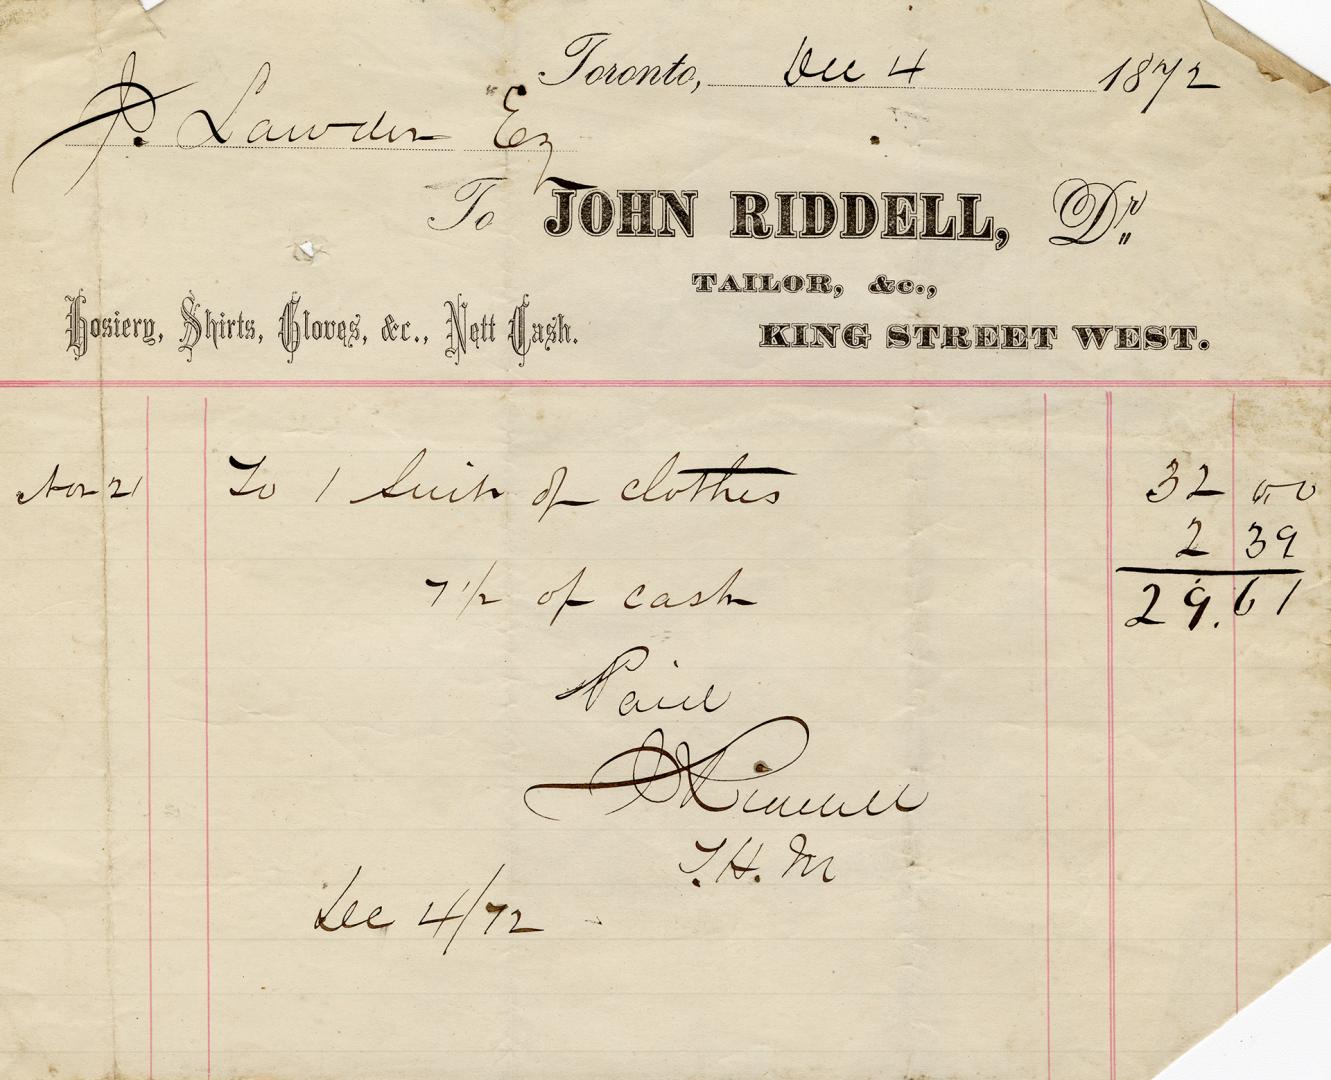 Toronto, Dec 4 1872
J. Lawder Eq
To JOHN RIDDELL, Dr
TAILOR, &c.,
Hosiery, Shirts, Gloves, &c., Nett Cash.
KING STREET WEST.
Nov 21 To 1 Suit of clothes 32 00
2 39
7 1/2 of cash 29.61
Paid
J Riddell
T.H.M
Dec 4/72